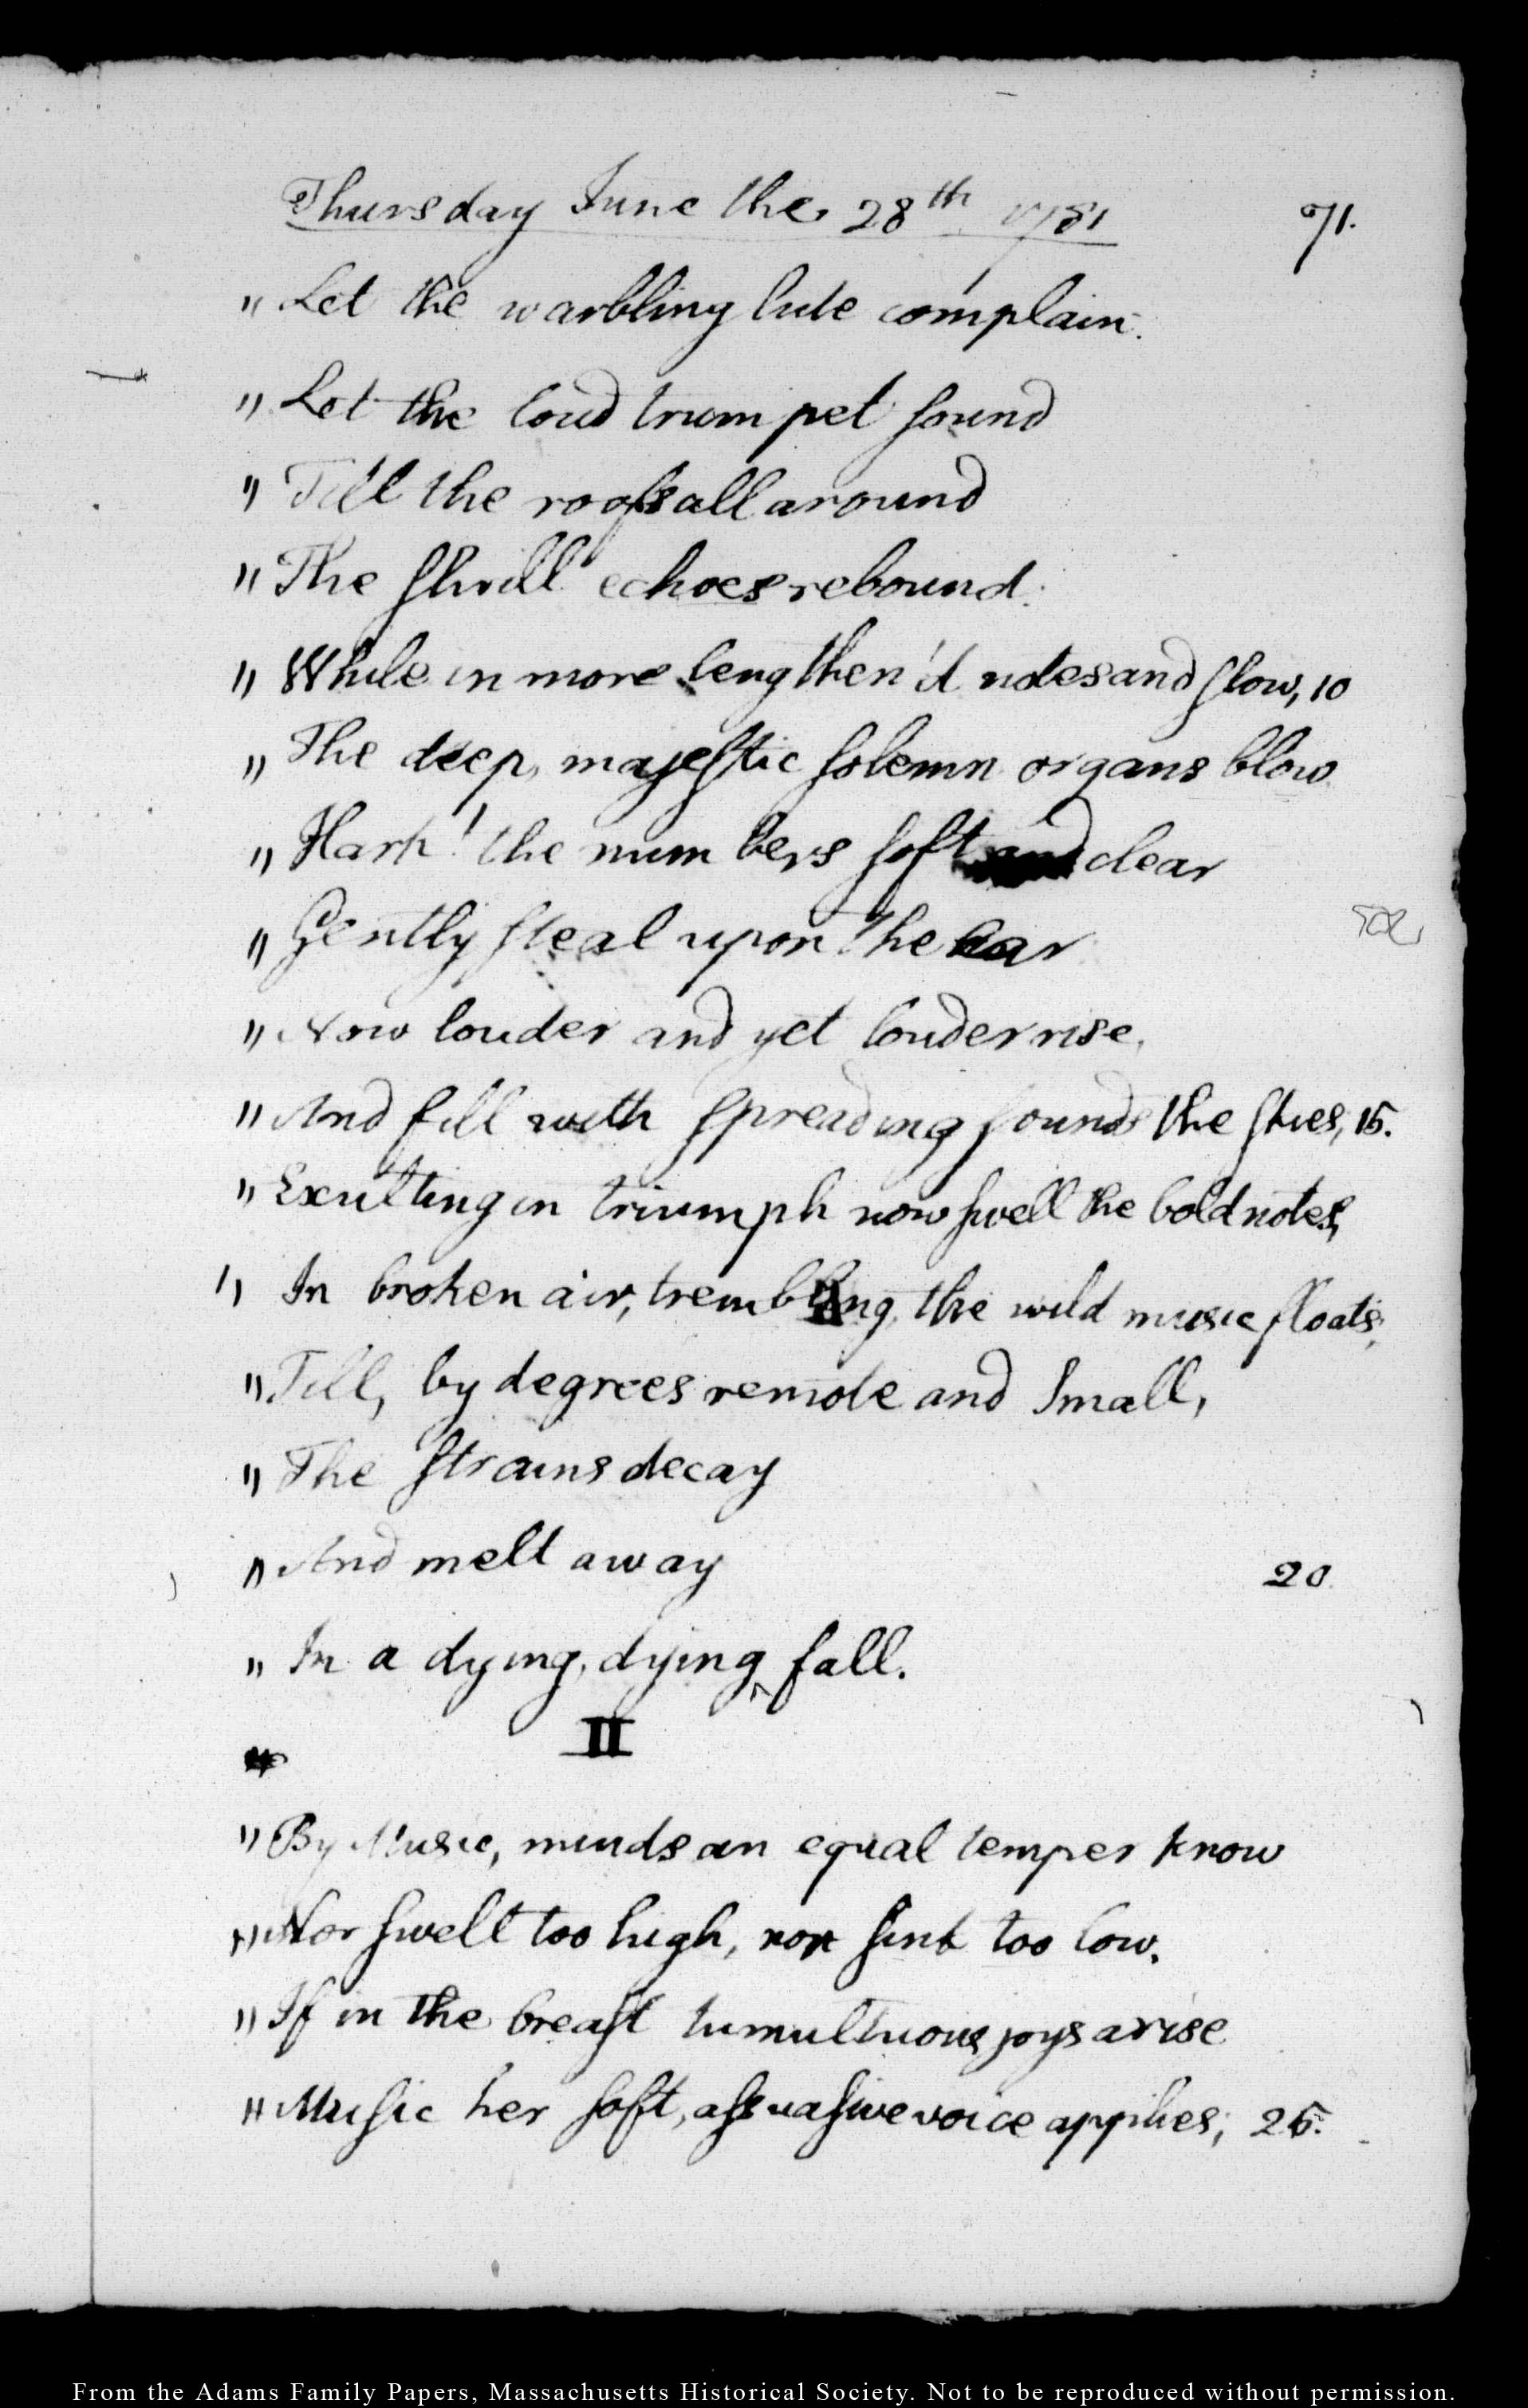 Thursday June the 28th 1781 71.
" Let the warbling lute complain.
" Let the loud trumpet sound
" Till the roofs all around
" The shrill echoes rebound:
" While in more lengthen'd notes and slow, 10
" The deep, majestic solemn organs blow.
" Hark! the numbers soft and clear
" Gently steal upon the ear
" Now louder and yet louder rise,
" And fill with spreading sounds the skies, 15.
" Exulting in triumph now swell the bold notes,
" In broken air, trembling, the wild music floats;
" Till, by degrees remote and small,
" The strains decay
" And melt away 20.
" In a dying, dying fall.
II
" By Music, minds an equal temper know
" Nor swell too high, nor sink too low.
" If in the breast tumultuous joys arise
" Music her soft, assuasive voice applies; 25.
From the Adams Family Papers, Massachusetts Historical Society. Not to be reproduced without permission.